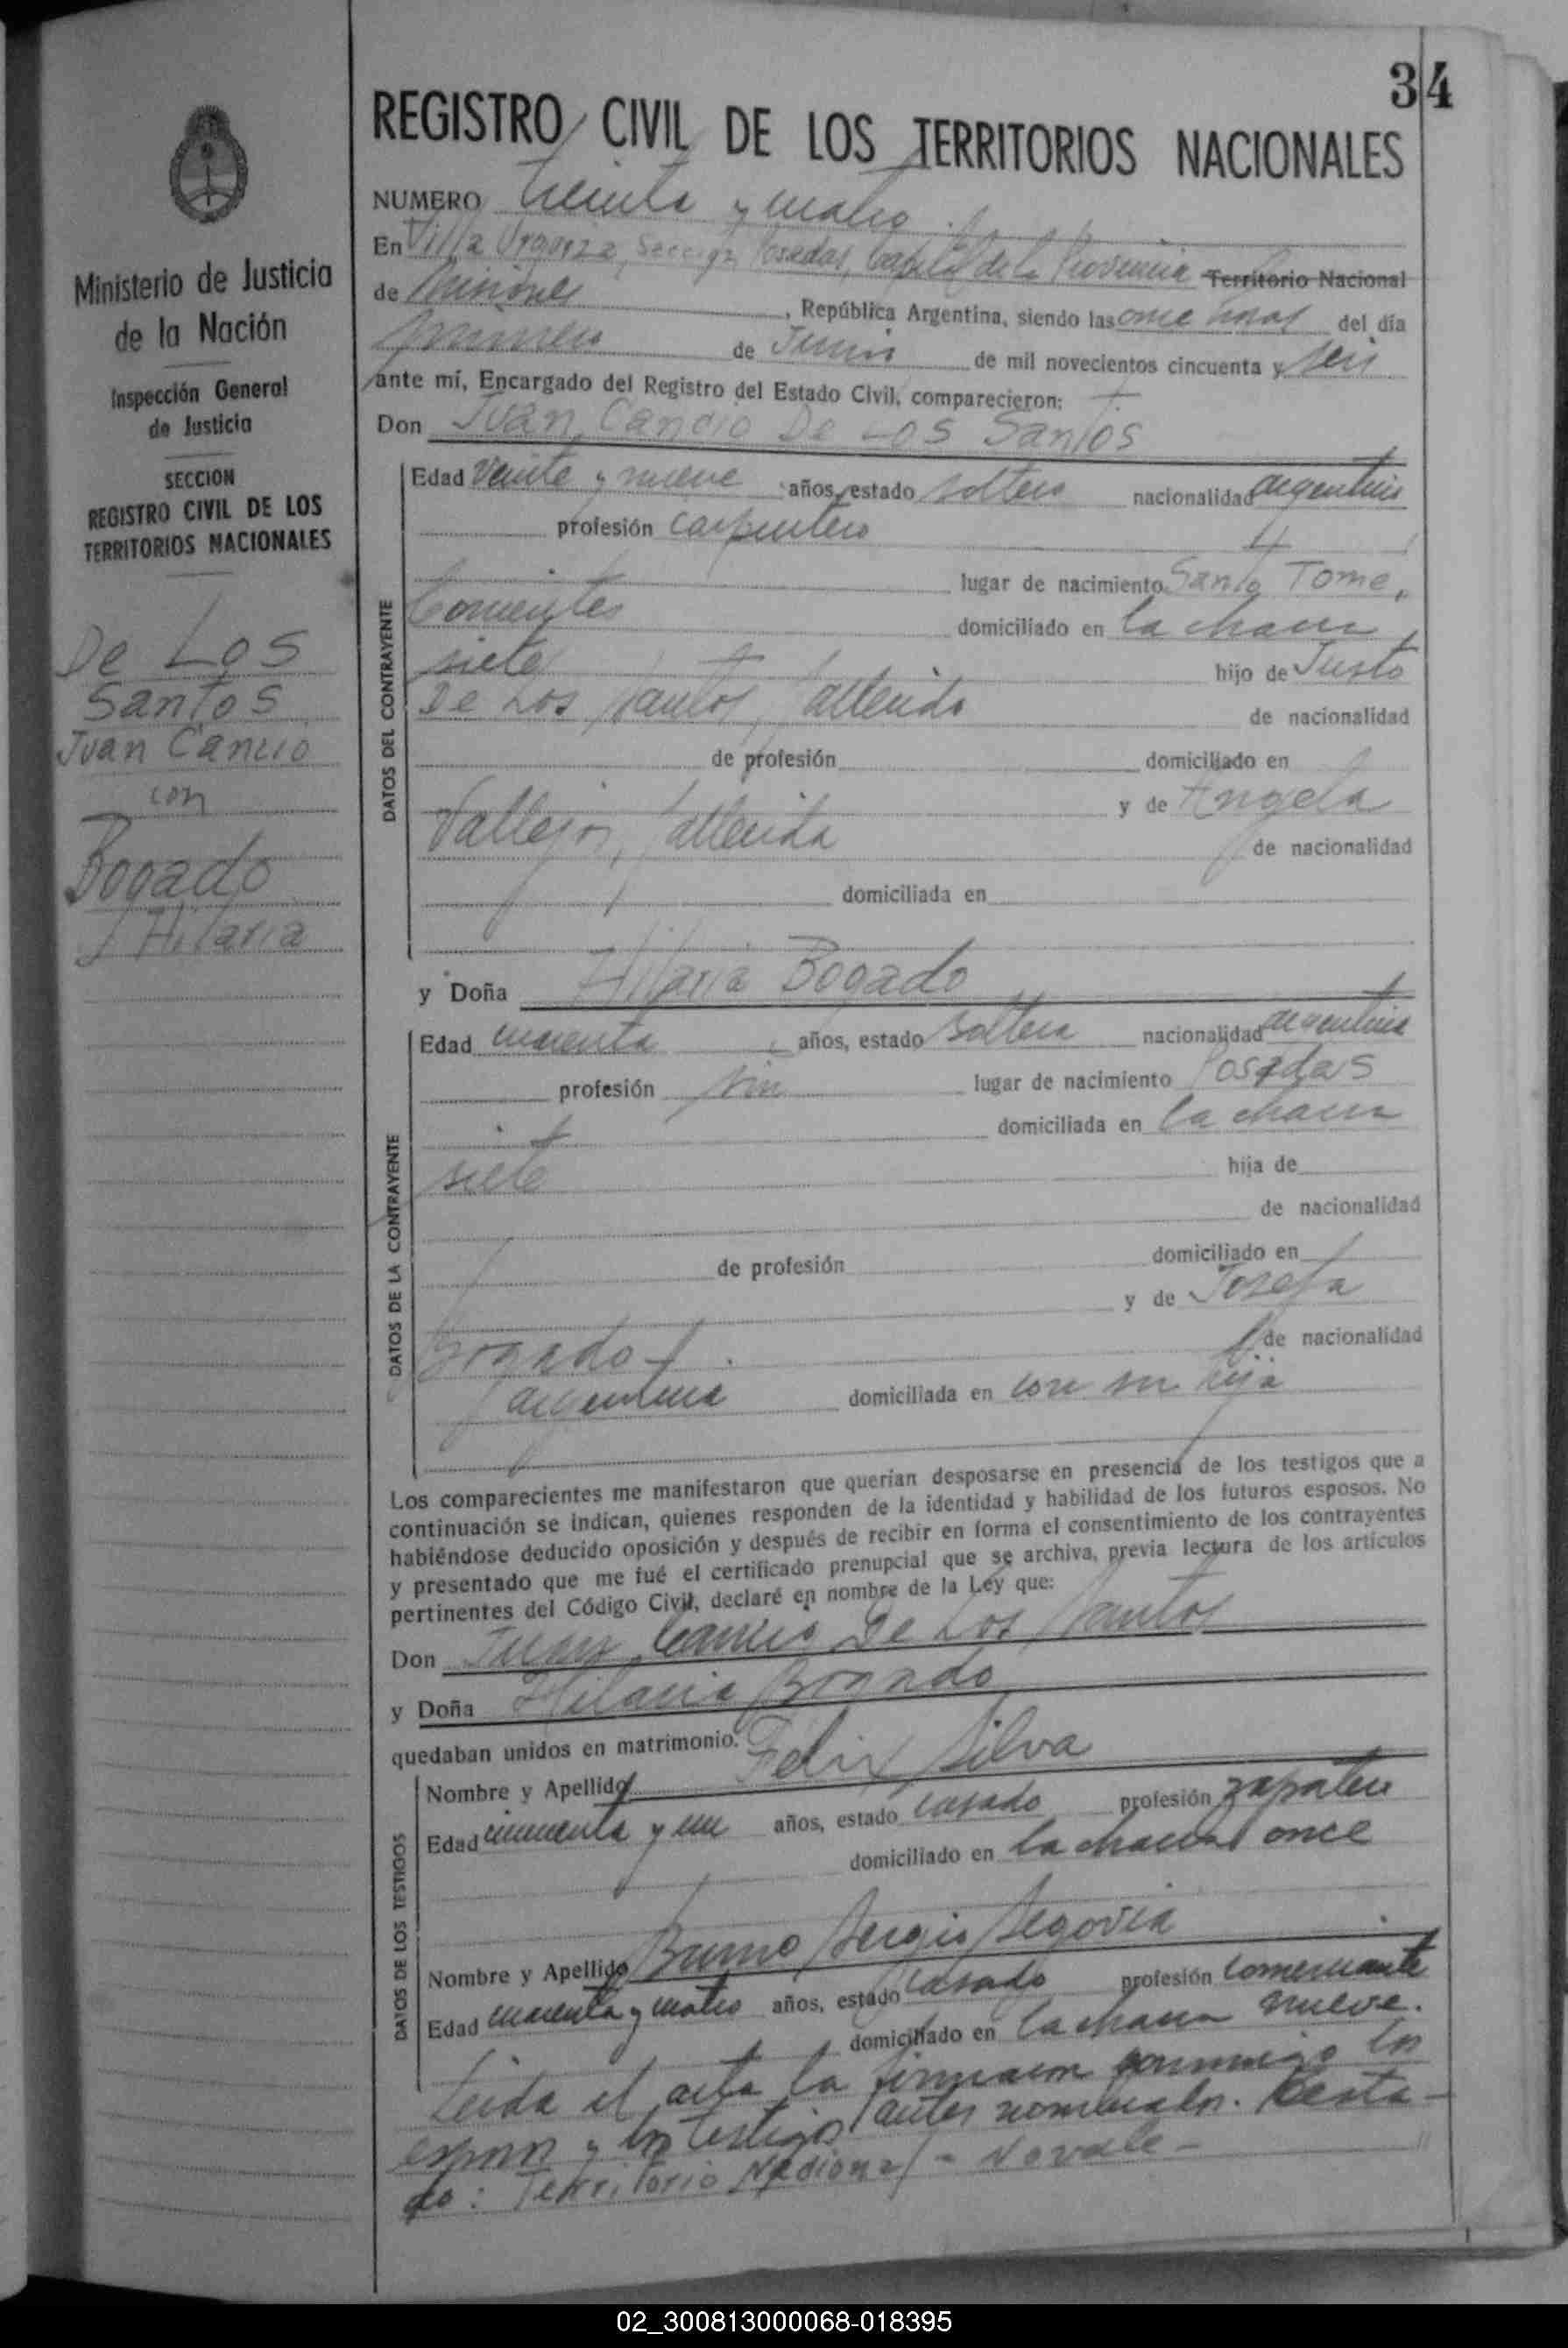 34
REGISTRO CIVIL DE LOS TERRITORIOS NACIONALES
Ministerio de Justicia
de la Nación
Inspección General
de Justicia
SECCION
REGISTRO CIVIL DE LOS
TERRITORIOS NACIONALES
De Los
Santos
Juan Cancio
con
Bogado
Hilaria
NUMERO treinta y cuatro
En Villa Urquiza, Sección Posadas, Capital de la Provincia Territorio Nacional
de Misiones, República Argentina, siendo las once horas del día
primero de Junio de mil novecientos cincuenta y seis
ante mí, Encargado del Registro del Estado Civil, comparecieron:
Don Juan Cancio De Los Santos
DATOS DEL CONTRAYENTE
Edad veinte y nueve años, estado soltero nacionalidad argentino
profesión carpintero
lugar de nacimiento Santo Tome,
Corrientes domiciliado en la chacra
siete hijo de Justo
De Los Santos, fallecido de nacionalidad
de profesión domiciliado en
y de Angela
Vallejos, fallecida de nacionalidad
domiciliada en
y Doña Hilaria Bogado
DATOS DE LA CONTRAYENTE
Edad cuarenta años, estado soltera nacionalidad argentina
profesión sin lugar de nacimiento Posadas
domiciliada en la chacra
siete hija de
de nacionalidad
de profesión domiciliado en
y de Josefa
Bogado de nacionalidad
argentina domiciliada en con su hija
Los comparecientes me manifestaron que querían desposarse en presencia de los testigos que a
continuación se indican, quienes responden de la identidad y habilidad de los futuros esposos. No
habiéndose deducido oposición y después de recibir en forma el consentimiento de los contrayentes
y presentado que me fué el certificado prenupcial que se archiva, previa lectura de los artículos
pertinentes del Código Civil, declaré en nombre de la Ley que:
Don Juan Cancio De Los Santos
y Doña Hilaria Bogado
quedaban unidos en matrimonio.
DATOS DE LOS TESTIGOS
Nombre y Apellido Felix Silva
Edad cincuenta y un años, estado casado profesión zapatero
domiciliado en la chacra once
Nombre y Apellido Bruno Sergio Segovia
Edad cuarenta y cuatro años, estado casado profesión comerciante
domiciliado en la chacra nueve.
Leida el acta la firmaron conmigo los
esposos y los testigos antes nombrados. Testa-
do: Territorio Nacional - No vale -
02_300813000068-018395